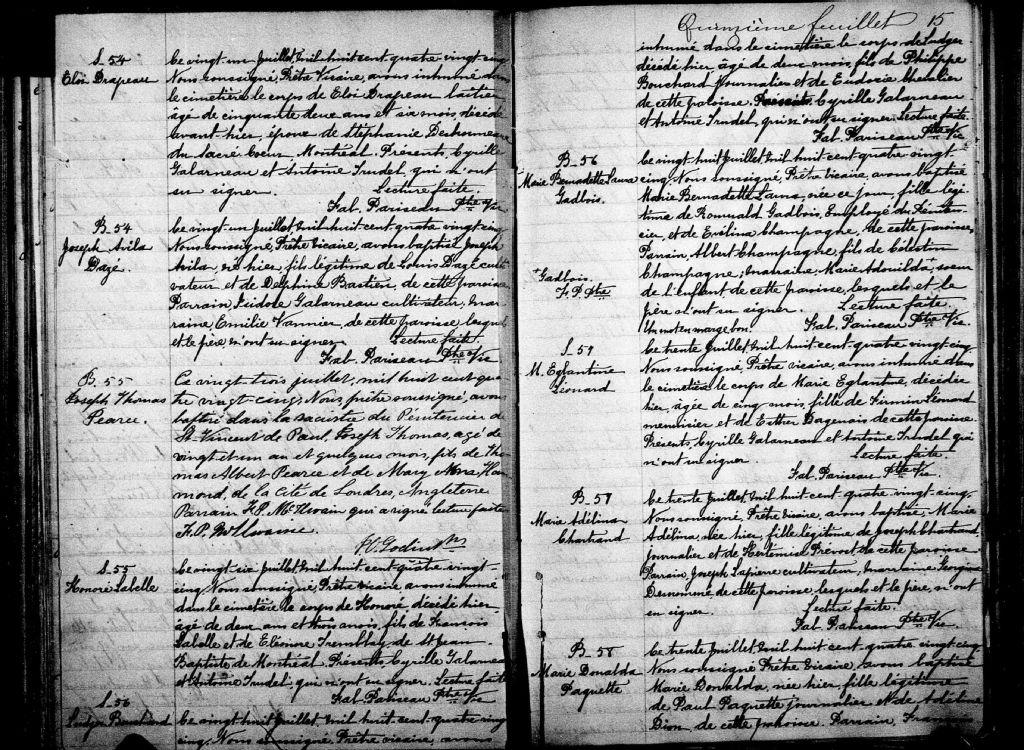 S_54
Eloi Drapeau
Ce vingt-un Juillet, mil huit cent quatre vingt cinq
Nous soussigné, Prêtre Vicaire, avons inhumé dans
le cimetière le corps de Eloi Drapeau
âgé de cinquante deux ans et six mois, décédé
avant-hier, époux de Stéphanie Deshonneau
du Sacré Coeur Montréal. Présents, Cyrille
Galarneau et Antoine Trudel, qui n'ont
su signer. Lecture faite.
Fab. Pariseau Ptre Vic
B_54
Joseph Avila
Dagé.
Ce vingt-un Juillet, mil huit cent quatre vingt cinq
Nous soussigné, Prêtre Vicaire, avons baptisé Joseph
Avila, né hier, fils légitime de Louis Dagé culti
vateur et de Delphine Bastien, de cette paroisse
Parrain, Isidore Galarneau cultivateur, mar
raine Emilie Vannier, de cette paroisse lesquels
et le père, n'ont su signer. Lecture faite.
Fab. Pariseau Ptre Vic
B_55
Joseph Thomas
Pearce.
Ce vingt trois juillet, mil huit cent qua
tre vingt cinq, Nous prêtre soussigné, avons
baptisé dans la sacristie du Pénitencier de
St Vincent de Paul, Joseph Thomas, agé de
vingt et un an et quelques mois, fils de Tho
mas Albert Pearce et de Mary Ham
mond, de la Cité de Londres, Angleterre
Parrain F.P. McIlwain qui a signé lecture faite
F.P. McIlwaine.
Godin Ptre
S_55
Honoré Labelle
Ce vingt six Juillet, mil huit cent quatre vingt-
cinq, Nous soussigné, Prêtre Vicaire, avons inhumé
dans le cimetière le corps de Honoré, décédé hier
âgé de deux ans et trois mois, fils de François
Labelle et de Eléonore Tremblay, de St Jean
Baptiste de Montréal. Présents, Cyrille Galarneau
et Antoine Trudel, qui n'ont su signer. Lecture faite
Fab. Pariseau Ptre Vic
S_56
Ludger Bouchard
Ce vingt huit Juillet, mil huit cent quatre vingt
cinq, Nous soussigné, Prêtre vicaire, avons
Quinzième feuillet 15
inhumé dans le cimetière le corps de Ludger
décédé hier âgé de deux mois, fils de Philippe
Bouchard Journalier et de Eudoxie Chevalier
de cette paroisse. Présents, Cyrille Galarneau
et Antoine Trudel, qui n'ont su signer. Lecture faite.
Fab. Pariseau Ptre Vic
B_56
Marie Bernadette Laura
Gadbois.
Ce vingt-huit Juillet, mil huit-cent-quatre vingt-
cinq, Nous soussigné, Prêtre vicaire, avons baptisé
Marie Bernadette Laura, née ce jour, fille légi
time de Romuald Gadbois, Employé du Péniten
cier, et de Evélina Champagne, de cette paroisse,
Parrain, Albert Champagne, fils de Célestin
Gadbois.
F.P. Ptre
Champagne; marraine, Marie Adouilda, soeur
de l'enfant de cette paroisse, lesquels et le
père n'ont su signer. Lecture faite.
Un mot en marge bon. Fab. Pariseau Ptre Vic.
S_57
M. Eglantine
Léonard
Ce trente Juillet, mil huit cent quatre vingt-cinq
Nous soussigné, Prêtre vicaire, avons inhumé dans
le cimetière le corps de Marie Eglantine, décédée
hier, âgée de cinq mois, fille de Firmin Léonard
menuisier et de Esther Dagenais de cette paroisse
Présents, Cyrille Galarneau et Antoine Trudel qui
n'ont su signer. Lecture faite.
Fab. Pariseau Ptre Vic
B_57
Marie Adélina
Chartrand
Ce trente Juillet, mil huit-cent-quatre vingt-cinq,
Nous soussigné, Prêtre vicaire, avons baptisé Marie
Adélina, née hier, fille légitime de Joseph Chartrand
journalier et de Hertémise Prévost de cette paroisse
Parrain, Joseph Lapierre cultivateur, marraine Georgina
de cette paroisse, lesquels et le père, n'ont
su signer. Lecture faite.
Fab. Pariseau Ptre Vic.
B_58
Marie Donalda
Paquette
Ce trente Juillet, mil huit cent quatre vingt-cinq
Nous soussigné Prêtre Vicaire, avons baptisé
Marie Donalda, née hier, fille légitime
de Paul Paquette journalier et de Adéline
Dion, de cette paroisse. Parrain,